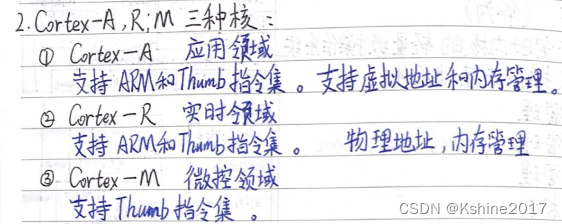 2. Cortex-A,R,M 三种核：
① Cortex-A 应用领域
支持 ARM和Thumb指令集。支持虚拟地址和内存管理。
② Cortex-R 实时领域
支持 ARM和Thumb指令集。 物理地址,内存管理
③ Cortex-M 微控领域
支持 Thumb指令集。
CSDN @Kshine2017